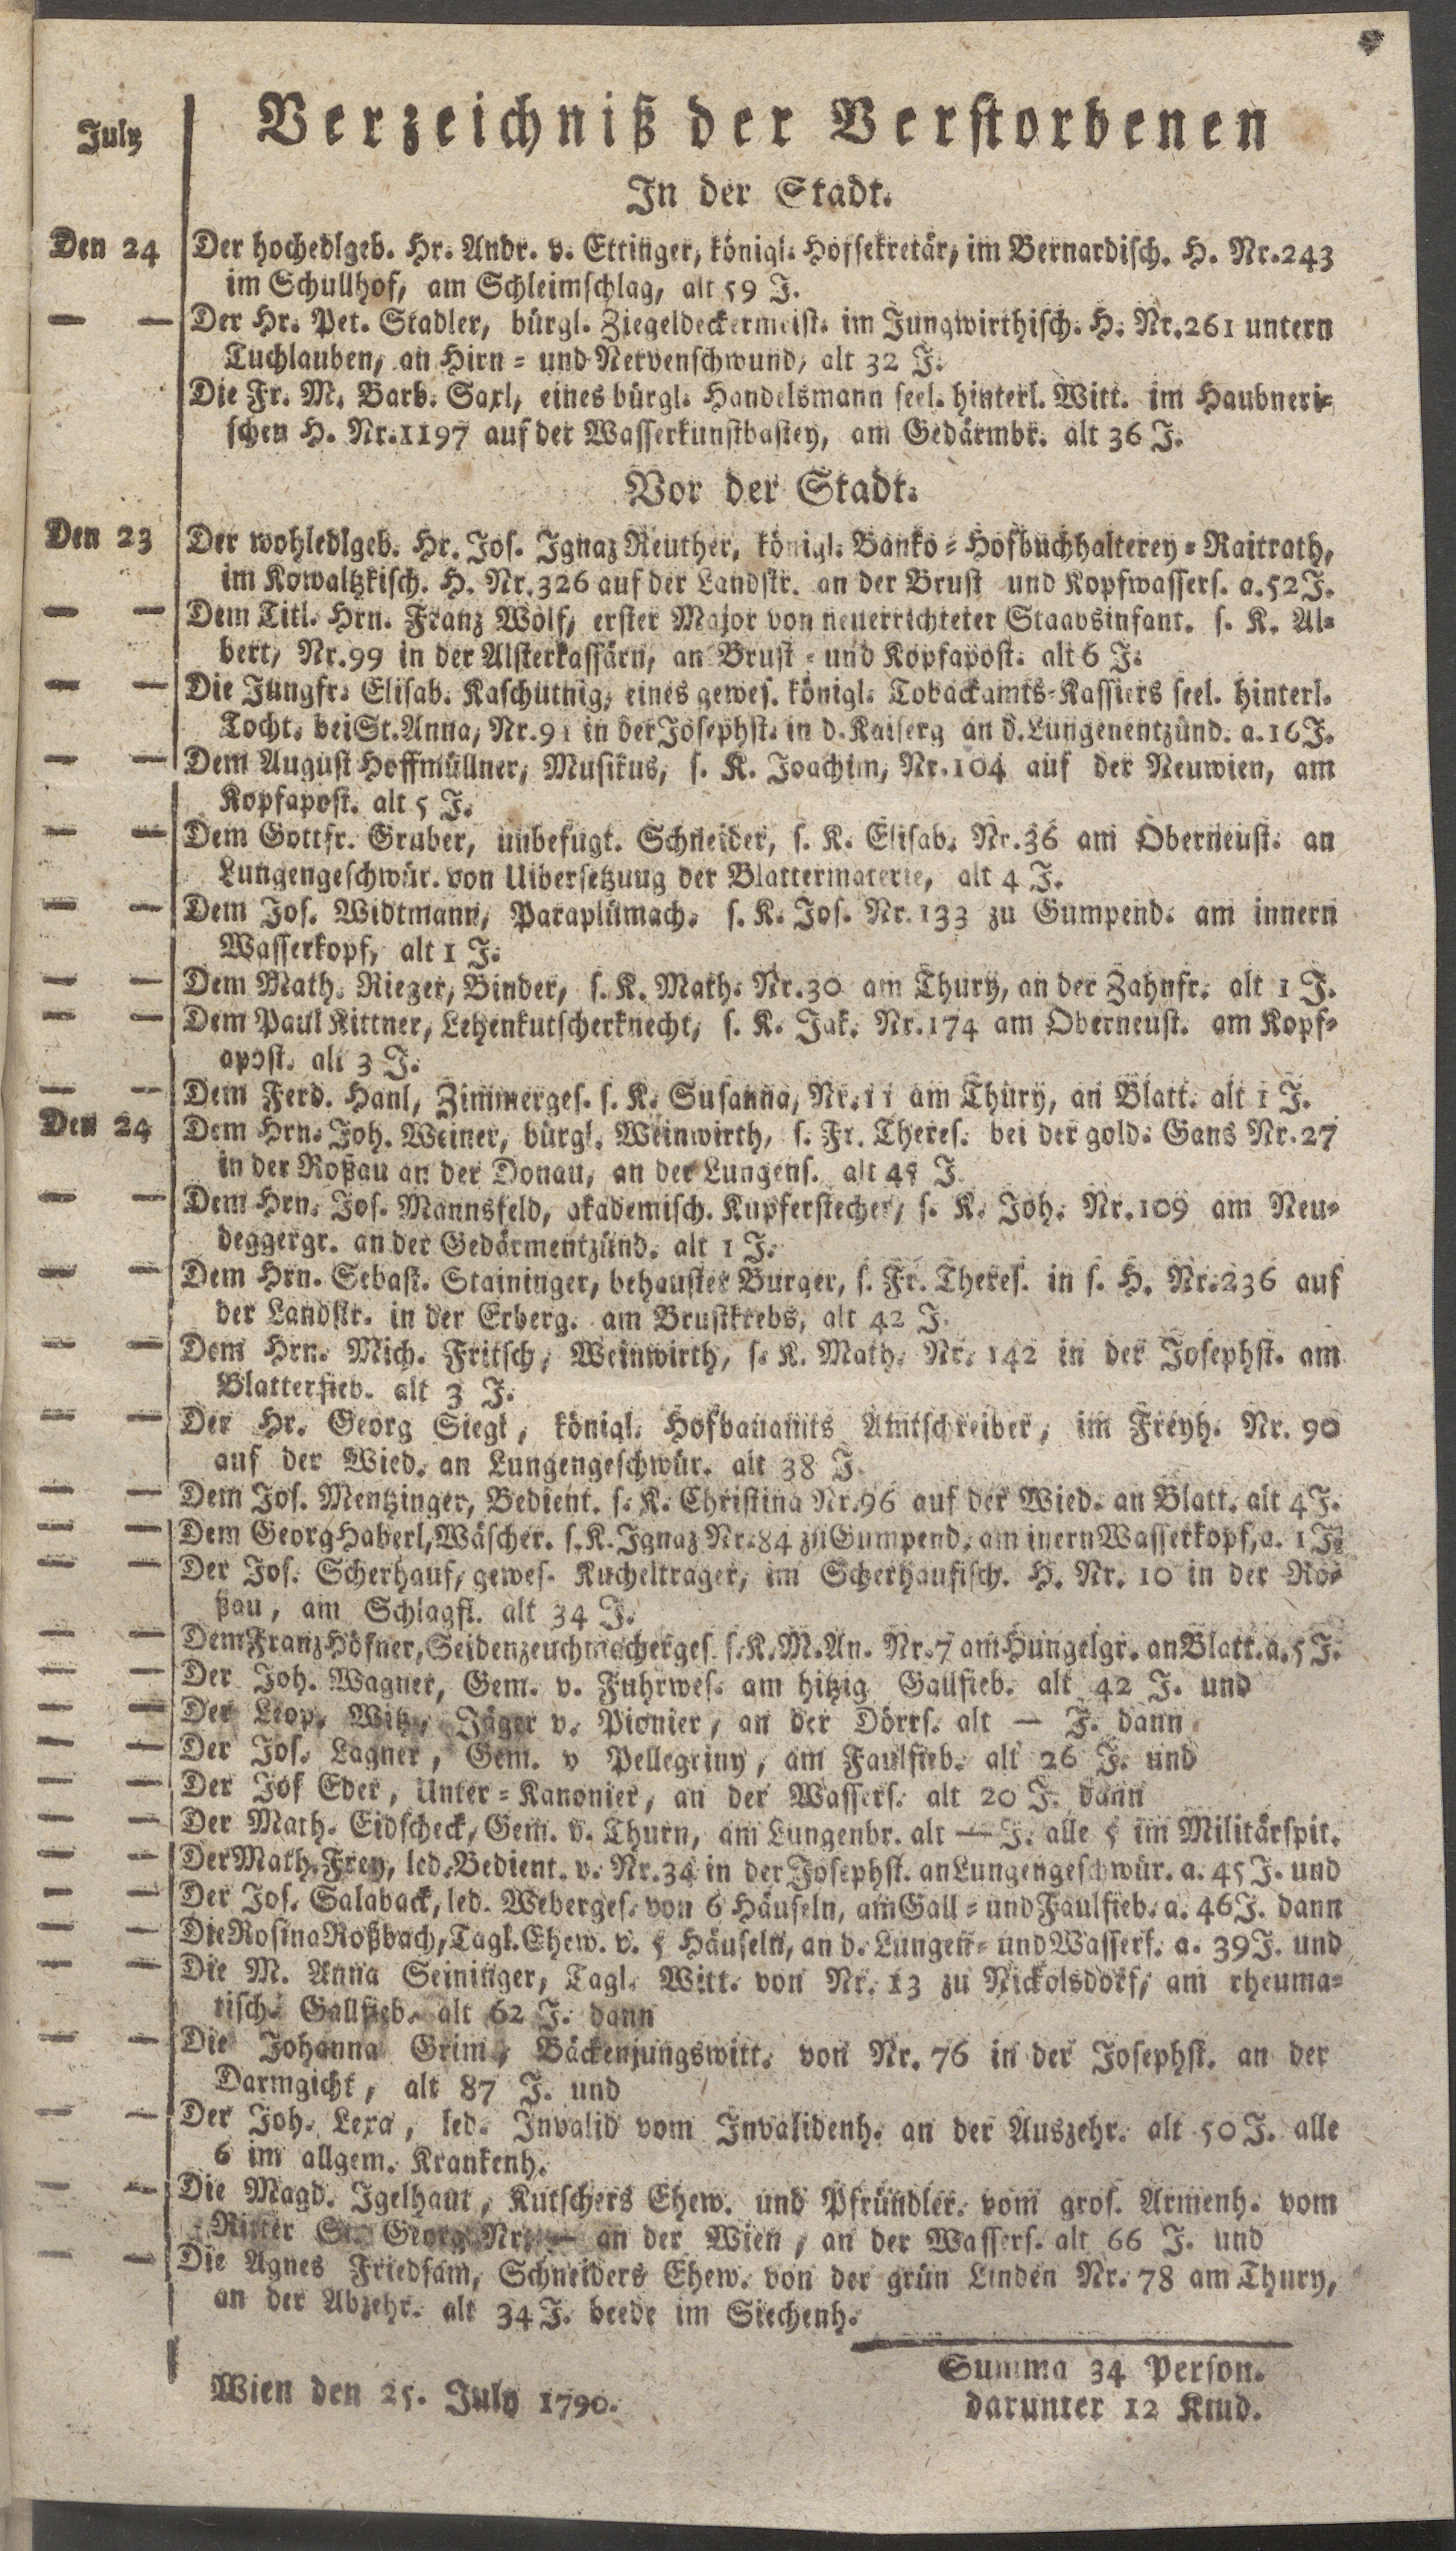 July
Verzeichniß der Verstorbenen
In der Stadt.
Den 24 Der hochedlgeb. Hr. Andr. v. Ettinger, königl. Hofsekretär, im Bernardisch. H. Nr.243
im Schullhof, am Schleimschlag, alt 59 J.
— — Der Hr. Pet. Stadler, bürgl. Ziegeldeckermeist. im Jungwirthisch. H. Nr.261 untern
Tuchlauben, an Hirn= und Nervenschwund, alt 32 J.
Die Fr. M. Barb. Saxl, eines bürgl. Handelsmann seel. hinterl. Witt. im Haubneri=
schen H. Nr.1197 auf der Wasserkunstbastey, am Gedärmbr. alt 36 J.
Vor der Stadt.
Den 23 Der wohledlgeb. Hr. Jos. Ignaz Reuther, königl. Banko=Hofbuchhalterey=Raitrath,
im Kowaltzkisch. H. Nr.326 auf der Landstr. an der Brust und Kopfwassers. a.52J.
— — Dem Titl. Hrn. Franz Wolf, erster Major von neuerrichteter Staabsinfant. s. K. Al=
bert, Nr.99 in der Alsterkassärn, an Brust = und Kopfapost. alt 6 J.
— — Die Jungfr. Elisab. Kaschutnig, eines gewes. königl. Tobackamts=Kassiers seel. hinterl.
Tocht. bei St. Anna, Nr.91 in der Josephst. in d. Kaiserg an d. Lungenentzünd. a.16J.
— — Dem August Hoffmüllner, Musikus, s. K. Joachim, Nr.104 auf der Neuwien, am
Kopfapost. alt 5 J.
— — Dem Gottfr. Gruber, unbefugt. Schneider, s. K. Elisab. Nr.36 am Oberneust. an
Lungengeschwür. von Uibersetzung der Blattermaterie, alt 4 J.
— — Dem Jos. Widtmann, Paraplümach. s. K. Jos. Nr.133 zu Gumpend. am innern
Wasserkopf, alt 1 J.
— — Dem Math. Rieger, Binder, s. K. Math. Nr.30 am Thury, an der Zahnfr. alt 1 J.
— — Dem Paul Kittner, Lehenkutscherknecht, s. K. Jak. Nr.174 am Oberneust. am Kopf=
apost. alt 3 J.
— — Dem Ferd. Hanl, Zimmerges. s. K. Susanna, Nr.11 am Thury, an Blatt. alt 1 J.
Den 24 Dem Hrn. Joh. Weiner, bürgl. Weinwirth, s. Fr. Theres. bei der gold. Gans Nr.27
in der Roßau an der Donau, an der Lungens. alt 45 J
— — Dem Hrn. Jos. Mannsfeld, akademisch. Kupferstecher, s. K. Joh. Nr.109 am Neu=
deggergr. an der Gedärmentzünd. alt 1 J.
— — Dem Hrn. Sebast. Staininger, behauster Burger, s. Fr. Theres. in s. H. Nr.236 auf
der Landstr. in der Erberg. am Brustkrebs, alt 42 J.
— — Dem Hrn. Mich. Fritsch, Weinwirth, s. K. Math. Nr. 142 in der Josephst. am
Blatterfieb. alt 3 J.
— — Der Hr. Georg Siegl, königl. Hofbauamts Amtschreiber, im Freyh. Nr. 90
auf der Wied. an Lungengeschwür. alt 38 J.
— — Dem Jos. Mentzinger, Bedient. s. K. Christina Nr.96 auf der Wied. an Blatt. alt 4 J.
— — Dem Georg Haberl, Wäscher. s. K. Ignaz Nr.84 zu Gumpend. am inern Wasserkopf, a. 1 J.
— — Der Jos. Scherhauf, gewes. Kucheltrager, im Scherhaufisch. H. Nr. 10 in der Ro=
ßau, am Schlagfl. alt 34 J.
— — Dem Franz Höfner, Seidenzeuchmacherges. s. K. M. An. Nr.7 am Hungelgr. an Blatt. a. 5 J.
— — Der Joh. Wagner, Gem. v. Fuhrwes. am hitzig Gallfieb. alt 42 J. und
— — Der Leop. Witz, Jäger v. Pionier, an der Dörrs. alt — J. dann
— — Der Jos. Lagner, Gem. v Pellegriny, am Faulfieb. alt 26 J. und
— — Der Jos Eder, Unter=Kanonier, an der Wassers. alt 20 J. dann
— — Der Math. Eidscheck, Gem. v. Thurn, am Lungenbr. alt — J. alle 5 im Militärspit.
— — Der Math. Frey, led. Bedient. v. Nr.34 in der Josephst. an Lungengeschwür. a. 45 J. und
— — Der Jos. Salaback, led. Weberges. von 6 Häuseln, am Gall = und Faulfieb. a. 46 J. dann
— — Die Rosina Roßbach, Tagl. Ehew. v. 5 Häuseln, an d. Lungen= und Wassers. a. 39 J. und
— — Die M. Anna Seininger, Tagl. Witt. von Nr. 13 zu Nickolsdorf, am rheuma=
tisch. Gallfieb. alt 62 J. dann
— — Die Johanna Grim, Bäckenjungswitt. von Nr. 76 in der Josephst. an der
Darmgicht, alt 87 J. und
— — Der Joh. Lexa, led. Invalid vom Invalidenh. an der Auszehr. alt 50 J. alle
6 im allgem. Krankenh.
— — Die Magd. Igelhaut, Kutschers Ehew. und Pfründler. vom gros. Armenh. vom
Ritter St. Georg Nr. — an der Wien, an der Wassers. alt 66 J. und
— — Die Agnes Friedsam, Schneiders Ehew. von der grün Linden Nr. 78 am Thury,
an der Abzehr. alt 34 J. beede im Siechenh.
Summa 34 Person.
Wien den 25. July 1790.
darunter 12 Kind.